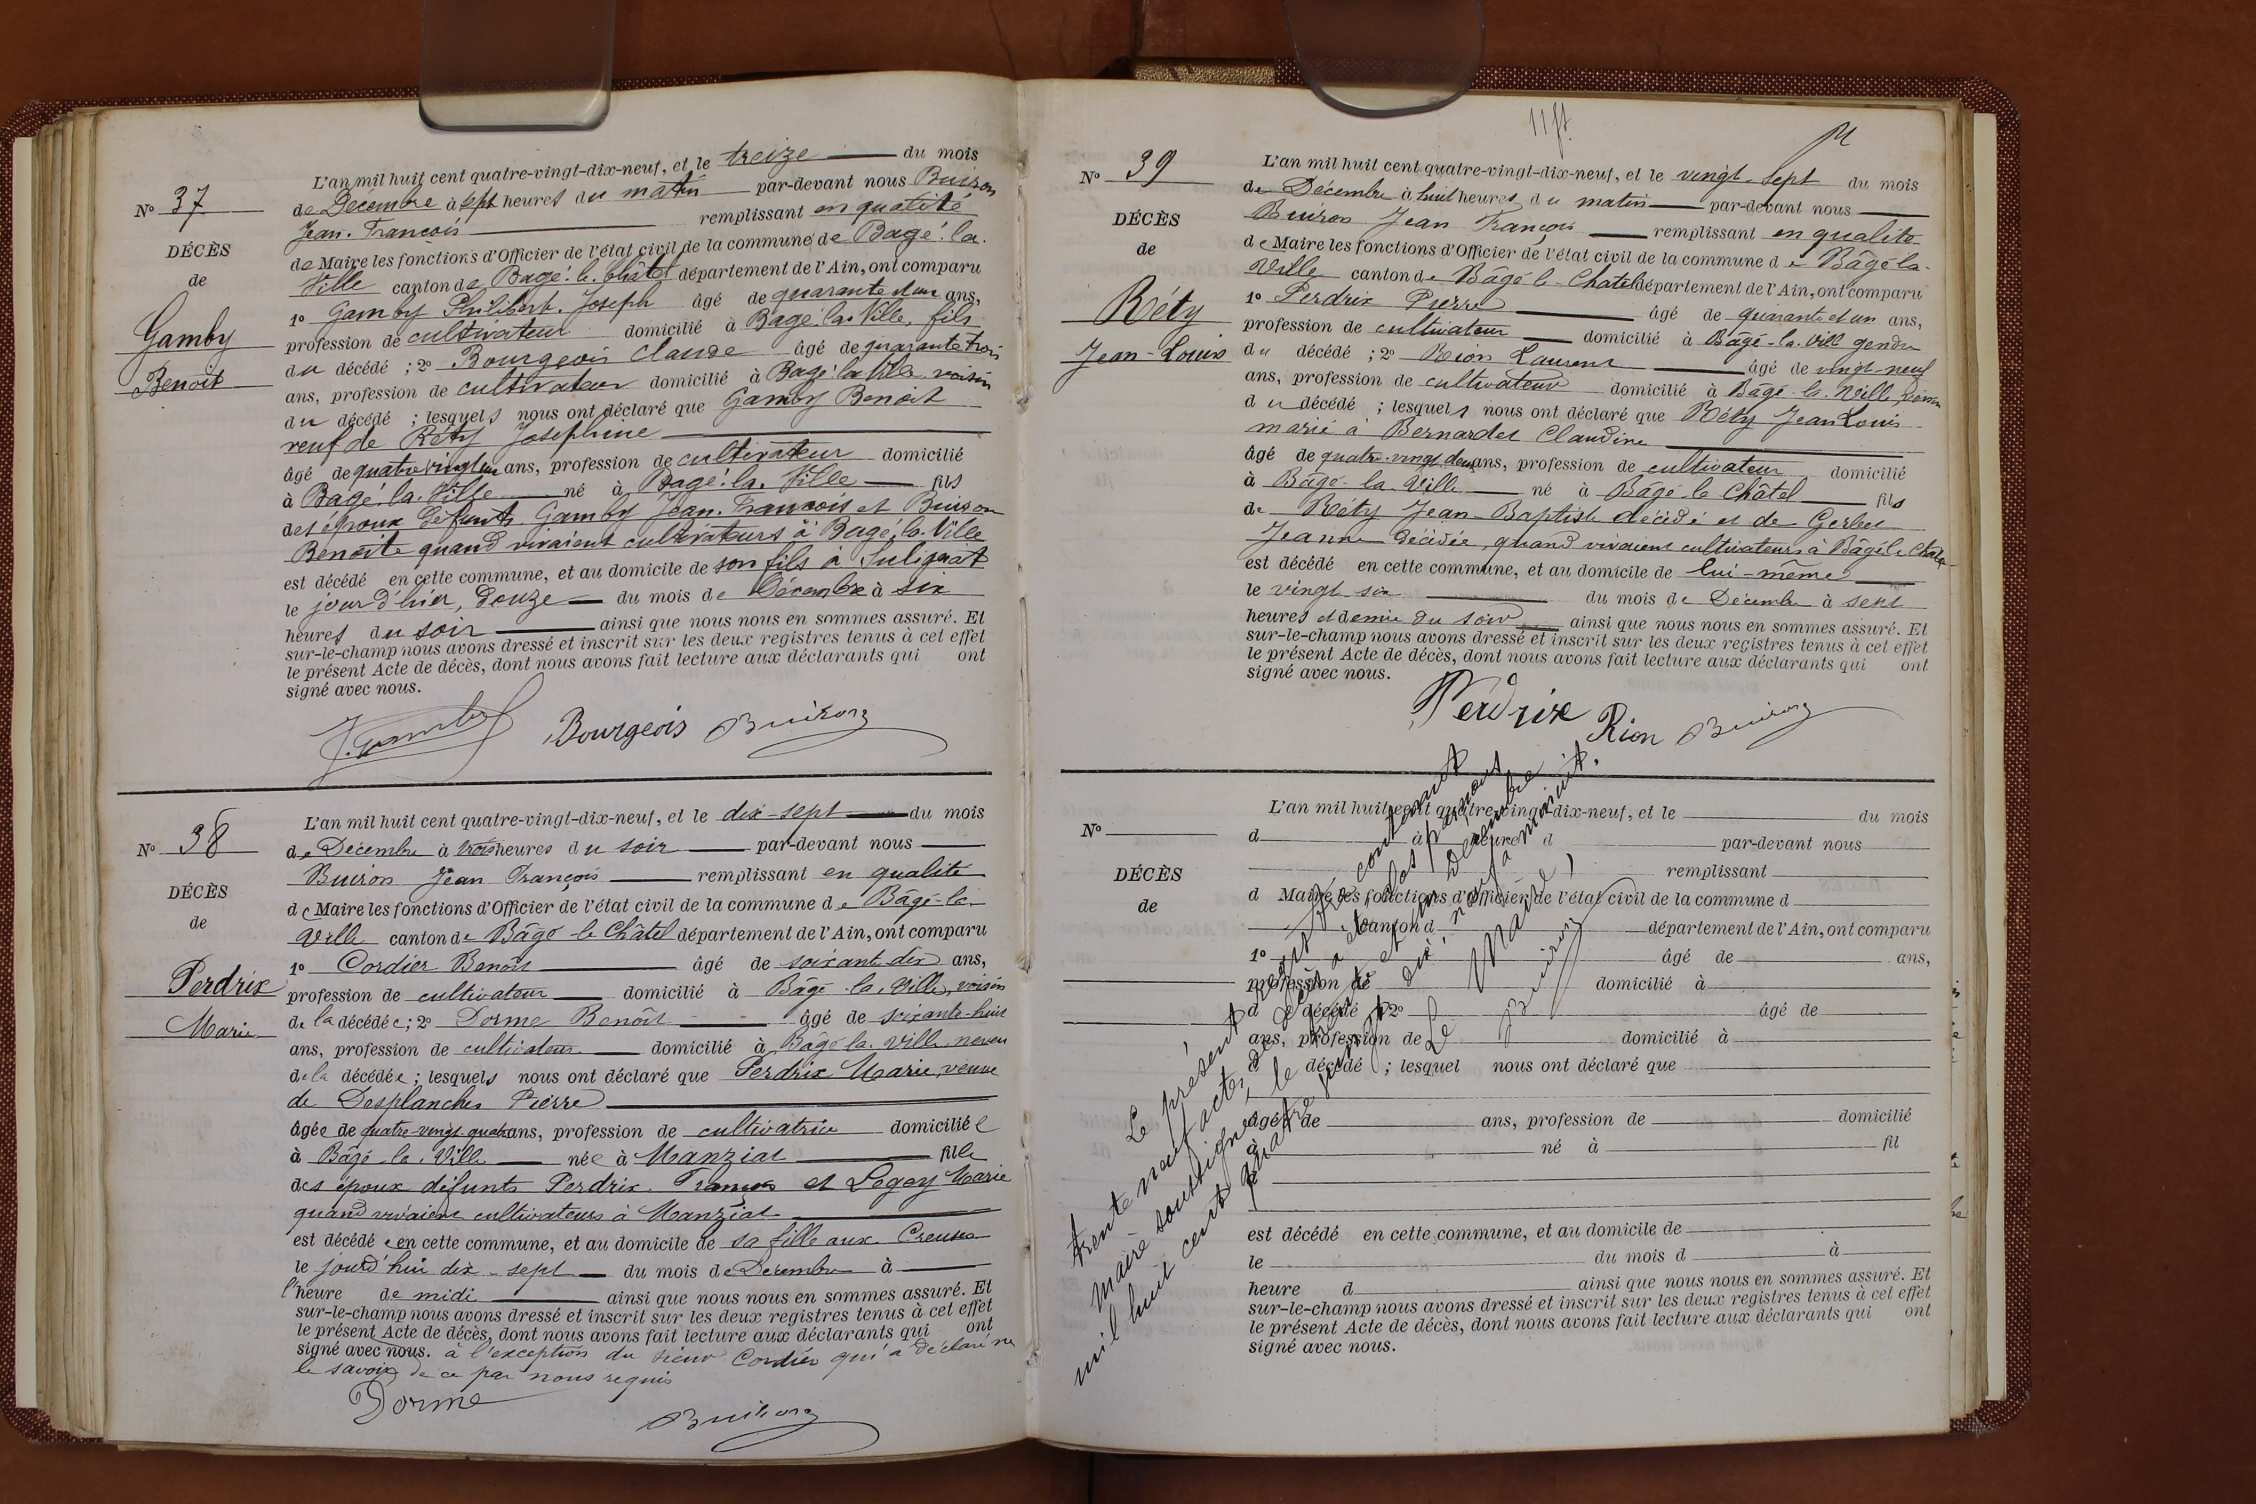 L'an mil huit cent quatre-vingt-dix-neuf, et le treize du mois
Nº 37
de Décembre à sept heures du matin par-devant nous Buiron
Jean-François remplissant en qualité
DÉCÈS
de Maire les fonctions d'Officier de l'état civil de la commune de Bagé-la-
de
Ville canton de Bagé-le-Châtel département de l'Ain, ont comparu
1º Gamby Philibert Joseph âgé de quarante et un ans,
Gamby
profession de cultivateur domicilié à Bagé-la-Ville, fils
du décédé ; 2º Bourgeois Claude âgé de quarante trois
Benoît
ans, profession de cultivateur domicilié à Bagé-la-Ville voisin
du décédé ; lesquels nous ont déclaré que Gamby Benoit
veuf de Réty Joséphine
âgé de quatre vingt un ans, profession de cultivateur domicilié
à Bagé-la-Ville né à Bagé-la-Ville fils
des époux défunts Gamby Jean-François et Buiron
Benoite quand vivaient cultivateurs à Bagé-la-Ville
est décédé en cette commune, et au domicile de son fils à Sulignat
le jour d'hier, douze du mois de Décembre à six
heures du soir ainsi que nous nous en sommes assuré. Et
sur-le-champ nous avons dressé et inscrit sur les deux registres tenus à cet effet
le présent Acte de décès, dont nous avons fait lecture aux déclarants qui ont
signé avec nous.
J. Gamby Bourgeois Buiron
L'an mil huit cent quatre-vingt-dix-neuf, et le dix-sept du mois
Nº 38
de Décembre à trois heures du soir par-devant nous
Buiron Jean François remplissant en qualité
DÉCÈS
de Maire les fonctions d'Officier de l'état civil de la commune de Bâgé-la-
de
Ville canton de Bâgé-le-Châtel département de l'Ain, ont comparu
1º Cordier Benoît âgé de soixant dix ans,
Perdrix
profession de cultivateur domicilié à Bâgé-la-Ville, voisin
Marie
de la décédée ; 2º Dorme Benoît âgé de soixante-huit
ans, profession de cultivateur domicilié à Bâgé-la-Ville neveu
de la décédée ; lesquels nous ont déclaré que Perdrix Marie, veuve
de Desplanches Pierre
âgée de quatre-vingt quatre ans, profession de cultivatrice domiciliée
à Bâgé-la-Ville née à Manziat fille
des époux défunts Perdrix François et Logey Marie
quand vivaient cultivateurs à Manziat
est décédée en cette commune, et au domicile de sa fille aux Creuses
le jourd'hui dix-sept du mois de Décembre à
l'heure de midi ainsi que nous nous en sommes assuré. Et
sur-le-champ nous avons dressé et inscrit sur les deux registres tenus à cet effet
le présent Acte de décès, dont nous avons fait lecture aux déclarants qui ont
signé avec nous. à l'exception du sieur Cordier qui a déclaré ne
le savoir de ce par nous requis
Dorme
Buiron
L'an mil huit cent quatre-vingt-dix-neuf, et le vingt-sept du mois
Nº 39
de Décembre à huit heures du matin par-devant nous
DÉCÈS
Buiron Jean François remplissant en qualité
de
de Maire les fonctions d'Officier de l'état civil de la commune de Bâgé-la-
Ville canton de Bâgé-le-Chatel département de l'Ain, ont comparu
Réty
1º Perdrix Pierre âgé de quarante et un ans,
profession de cultivateur domicilié à Bâgé-la-Ville gendre
Jean-Louis
du décédé ; 2º Rion Laurent âgé de vingt-neuf
ans, profession de cultivateur domicilié à Bâgé-la-Ville voisin
du décédé ; lesquels nous ont déclaré que Réty Jean Louis
marié à Bernardet Claudine
âgé de quatre-vingt deux ans, profession de cultivateur domicilié
à Bâgé-la-Ville né à Bâgé-le-Châtel fils
de Réty Jean-Baptiste décédé et de Gerbet
Jeanne décédée, quand vivaient cultivateurs à Bâgé-le-Châtel
est décédé en cette commune, et au domicile de lui-même
le vingt-six du mois de Décembre à sept
heures et demie du soir ainsi que nous nous en sommes assuré. Et
sur-le-champ nous avons dressé et inscrit sur les deux registres tenus à cet effet
le présent Acte de décès, dont nous avons fait lecture aux déclarants qui ont
signé avec nous.
Perdrix Rion Buiron
L'an mil huit cent quatre-vingt-dix-neuf, et le du mois
Nº
d à heure d par-devant nous
remplissant
DÉCÈS
d Maire les fonctions d'Officier de l'état civil de la commune d
de
canton d département de l'Ain, ont comparu
1º âgé de ans,
profession de domicilié à
d décédé ; 2º âgé de
ans, profession de domicilié à
d décédé ; lesquel nous ont déclaré que
âgé de ans, profession de domicilié
à né à fil
est décédé en cette commune, et au domicile de
le du mois d à
heure d ainsi que nous nous en sommes assuré. Et
sur-le-champ nous avons dressé et inscrit sur les deux registres tenus à cet effet
le présent Acte de décès, dont nous avons fait lecture aux déclarants qui ont
signé avec nous.
Le présent registre contenant
trente neuf actes de décès a été clos par nous
maire soussigné, le trente et un Décembre
mil huit cent quatre vingt dix neuf à minuit.
Le Maire,
Buiron